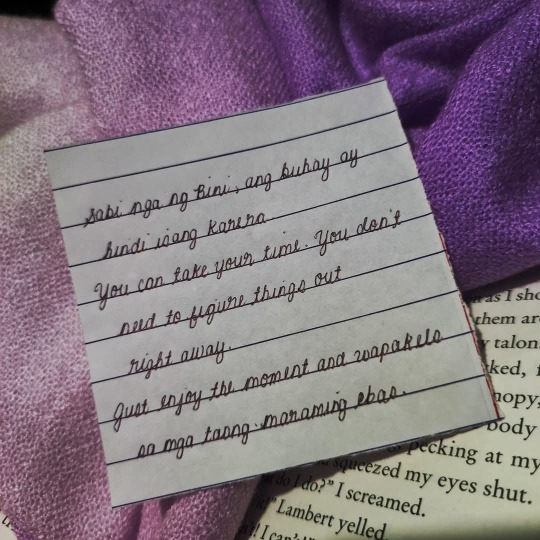 sabi nga ng Bini, ang buhay ay
hindi isang karera
You can take your time. You don't
need to figure things out
right away.
Just enjoy the moment and wapakels
sa mga taong maraming ebas.
as I sho
them are
y talon
ked, f
nopy,
body
pecking at my
squeezed my eyes shut.
do I do?" I screamed.
Lambert yelled.
I can't